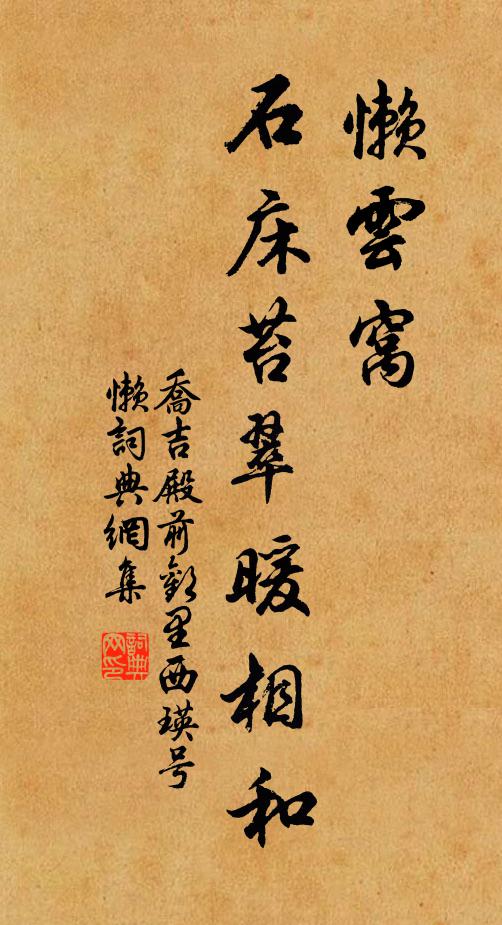 懶雲窩
石床苔翠暖相和
喬吉殿前歡里西瑛号
懶詞典網集
詞典网印